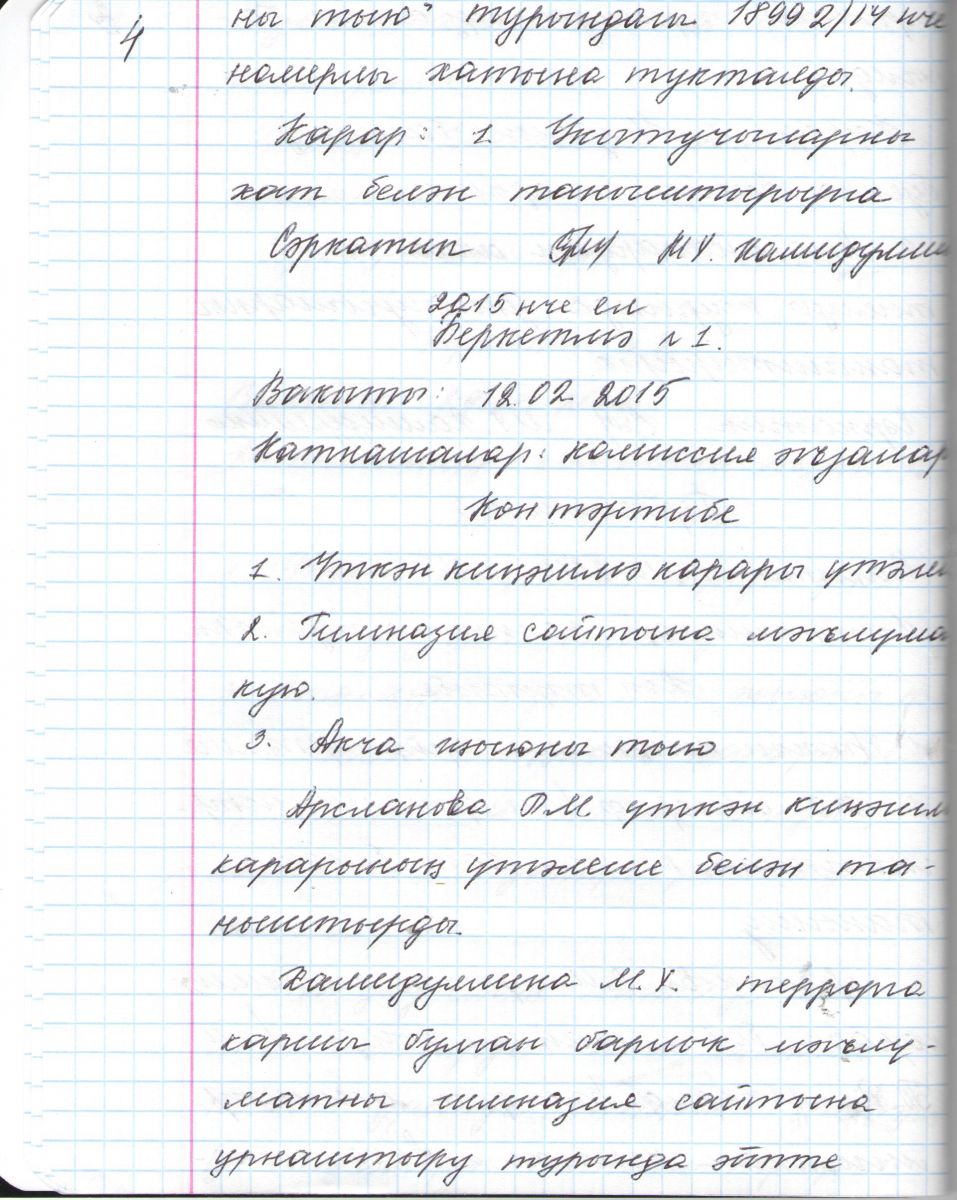 4
ны тыю" турындагы 18992/14 нче
номерлы хатына тукталды.
Карар: 1. Укытучыларны
хат белән танышtырырга
Сәркатип М.Х. Хамидулли
2015 нче ел
Беркетмә №1.
Вакыты: 12.02.2015
Катнашалар: комиссия әгъзалар
Көн тәртибе
1. Үткән киңәшмә карары үтәле
2. Гимназия сайтына мәгълүма
кую.
3. Акча җыюны тыю
Арсланова Р.М. үткән киңәшм
карарының үтәлеше белән та-
ныштырды.
Хамидуллина М.Х. террорга
каршы булган барлык мәгълү-
матны гимназия сайтына
урнаштыру турында әйтте